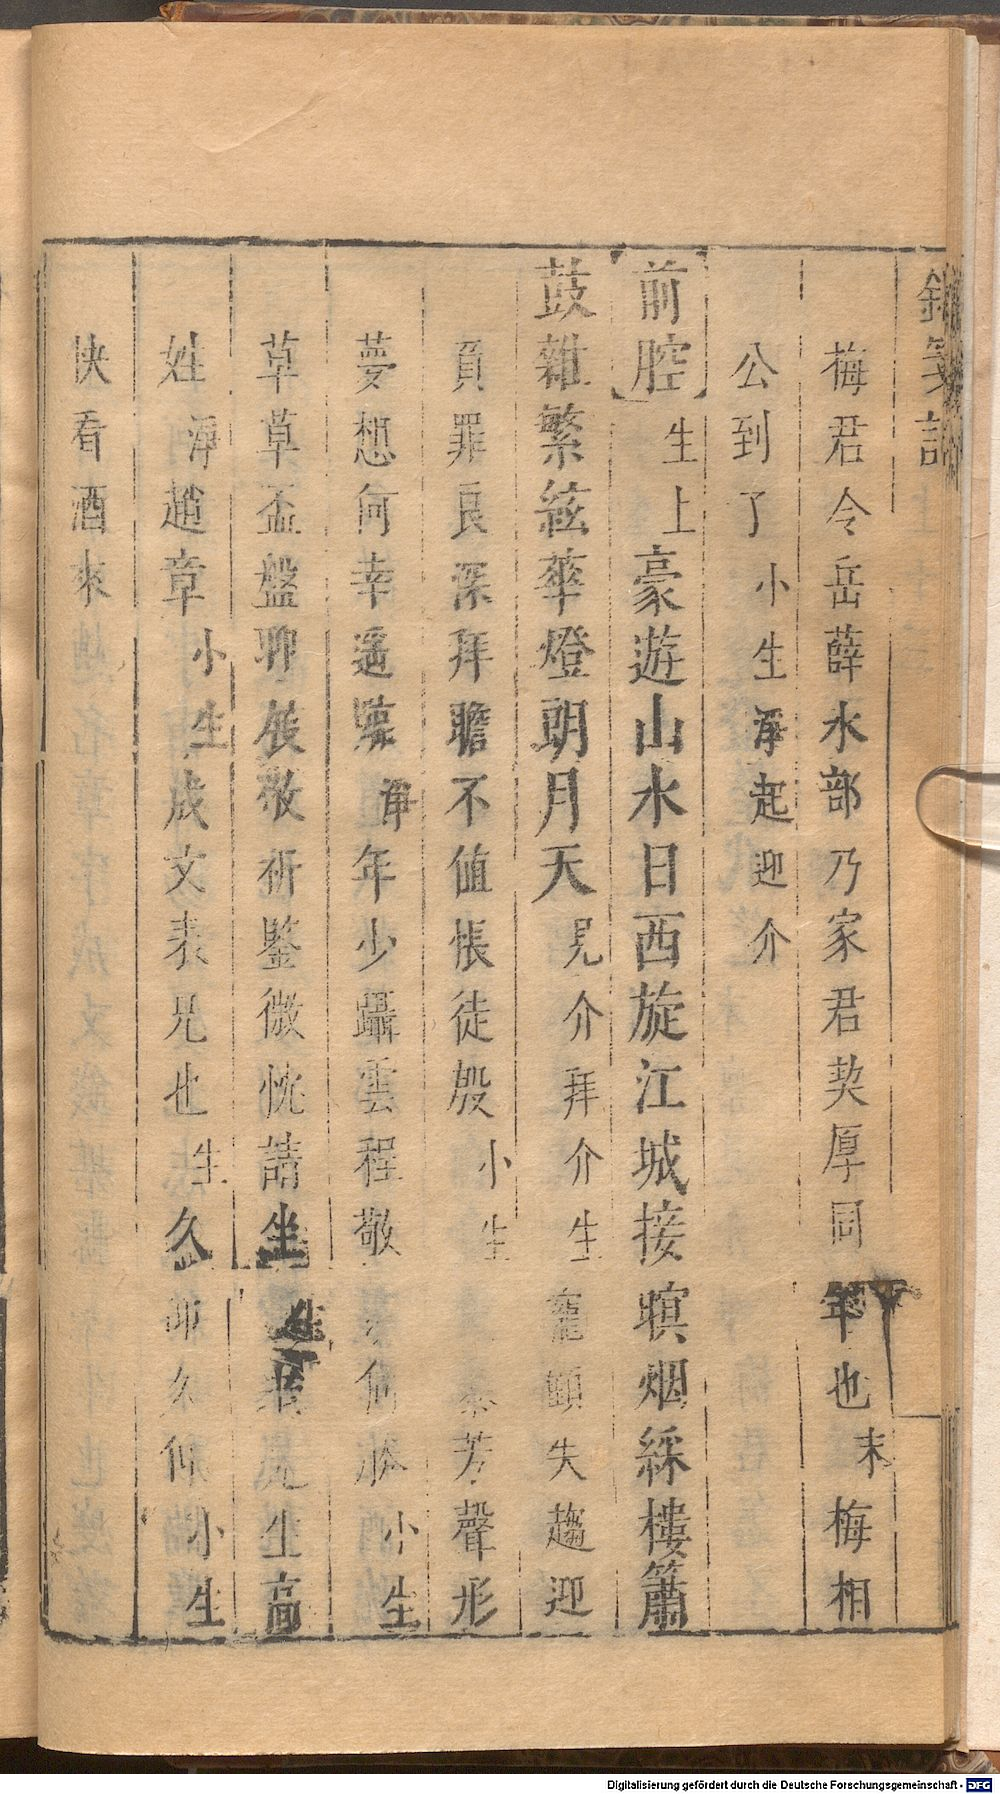 釵箋記
梅君令岳薛水部乃家君契厚同年也末梅相
公到了小生淨起迎介
【前腔】生上豪遊山水日西旋江城接暝烟綵樓簫
鼓雜繁絃華燈朗月天見介拜介生寵顧失趨迎
負罪良深拜瞻不值悵徒殷小生 芳聲形
夢想何幸遥 淨年少躡雲程敬 小生
草草盃盤聊展敬祈鑒微忱請坐 生 兄生高
姓淨趙章小生成文表兄也生久仰久仰小生
快看酒來
Digitalisierung gefördert durch die Deutsche Forschungsgemeinschaft - DFG